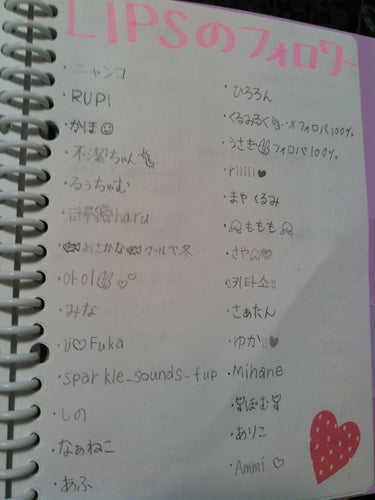 LIPSのフォロワー
・ニャンコ
・RUPI
・かほ☺
・不潔ちゃん
・るぅちゃむ
・haru
・おさかな クールベ冬
・아이 ♡♡
・みな
・ü♡Fuka
・sparkle_sounds_fup
・しの
・なぁねこ
・あふ
・ひろろん
・くるみるく フォロバ100%
・うさぎ フォロバ100%。
・riiiii♥
・まや くるみ
・ももも
・さや ♡
・키타소
・さぁたん
・ゆか ♥
・Mihane
・ぽむ
・ありこ
・Ammi ♡